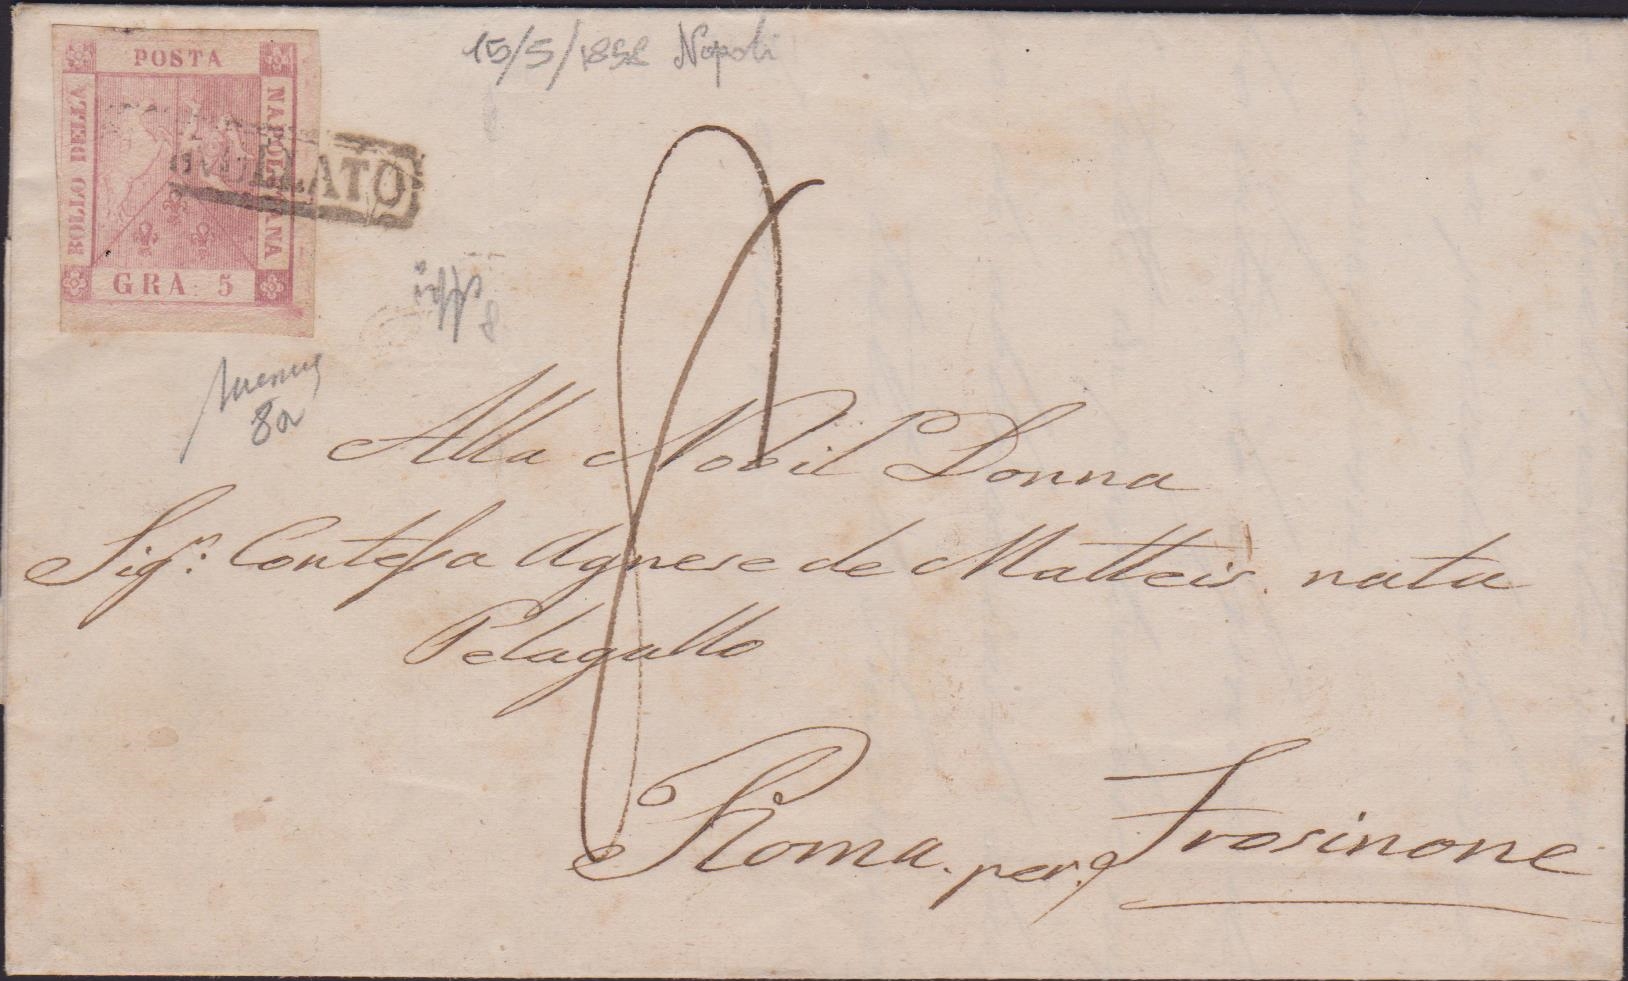 15/5/1858 Napoli
POSTA
BOLLO DELLA
NAPOLETANA
GRA 5
ANNULLATO
8
8a
Alla Nobil Donna
Sigra: Contessa Agnese de Matteis nata
Pelagallo
Roma per Frosinone